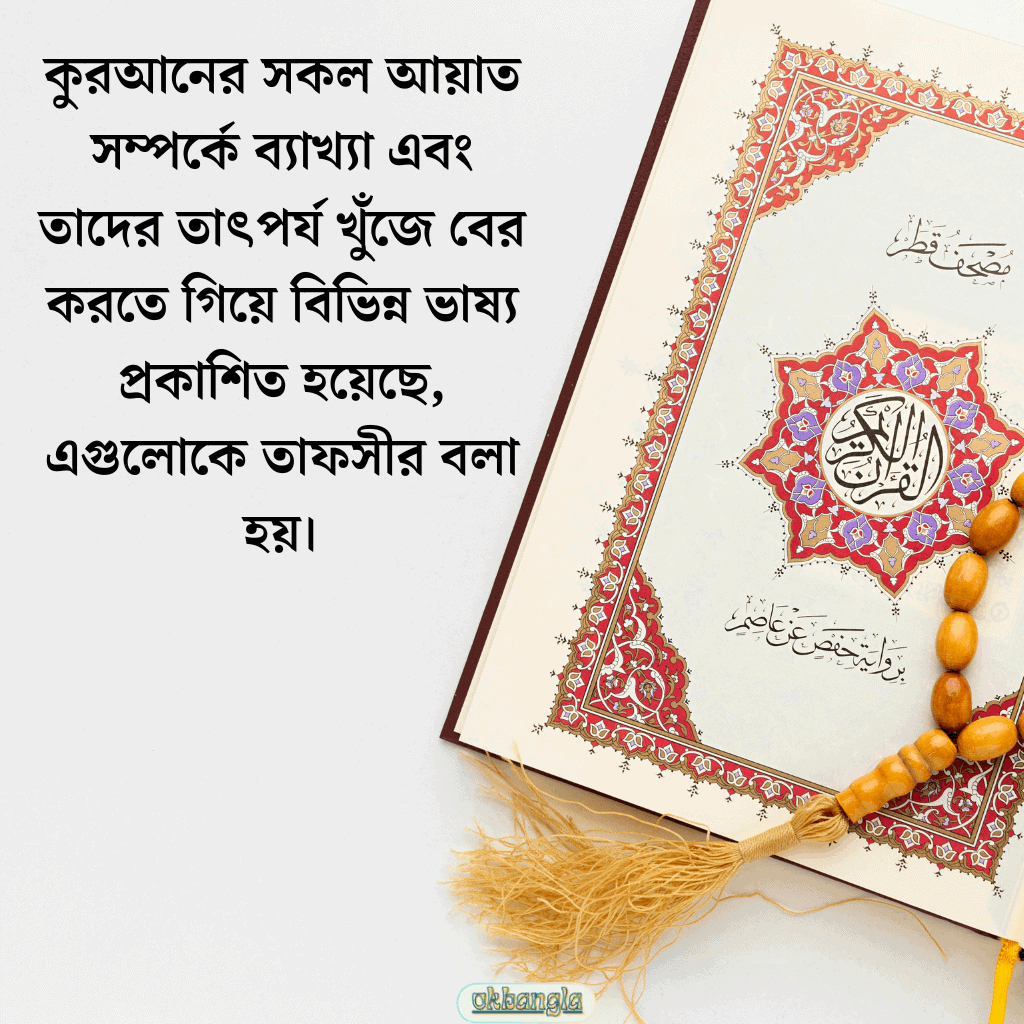 কুরআনের সকল আয়াত
সম্পর্কে ব্যাখ্যা এবং
তাদের তাৎপর্য খুঁজে বের
করতে গিয়ে বিভিন্ন ভাষ্য
প্রকাশিত হয়েছে,
এগুলোকে তাফসীর বলা
হয়।
مُصْحَفُ قَطَر
القرآن الكريم
بِرِوَايَةِ حَفْصٍ عَنْ عَاصِمٍ
okbangla